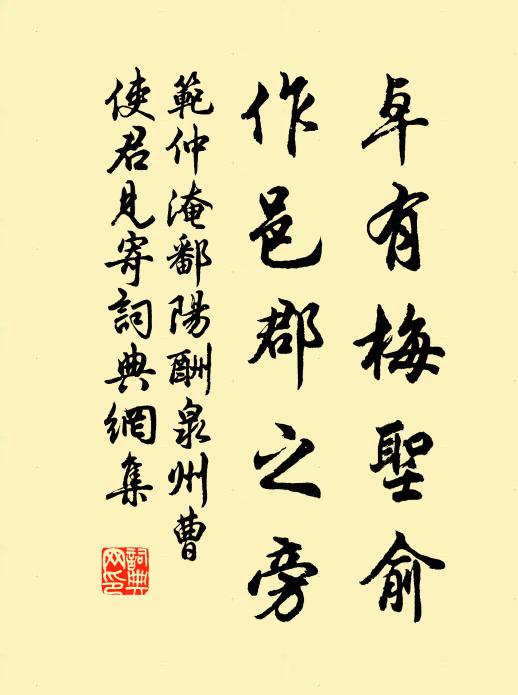 卓有梅聖俞
作邑郡之旁
範仲淹鄱陽酬泉州曹
使君見寄詞典網集
詞典網印